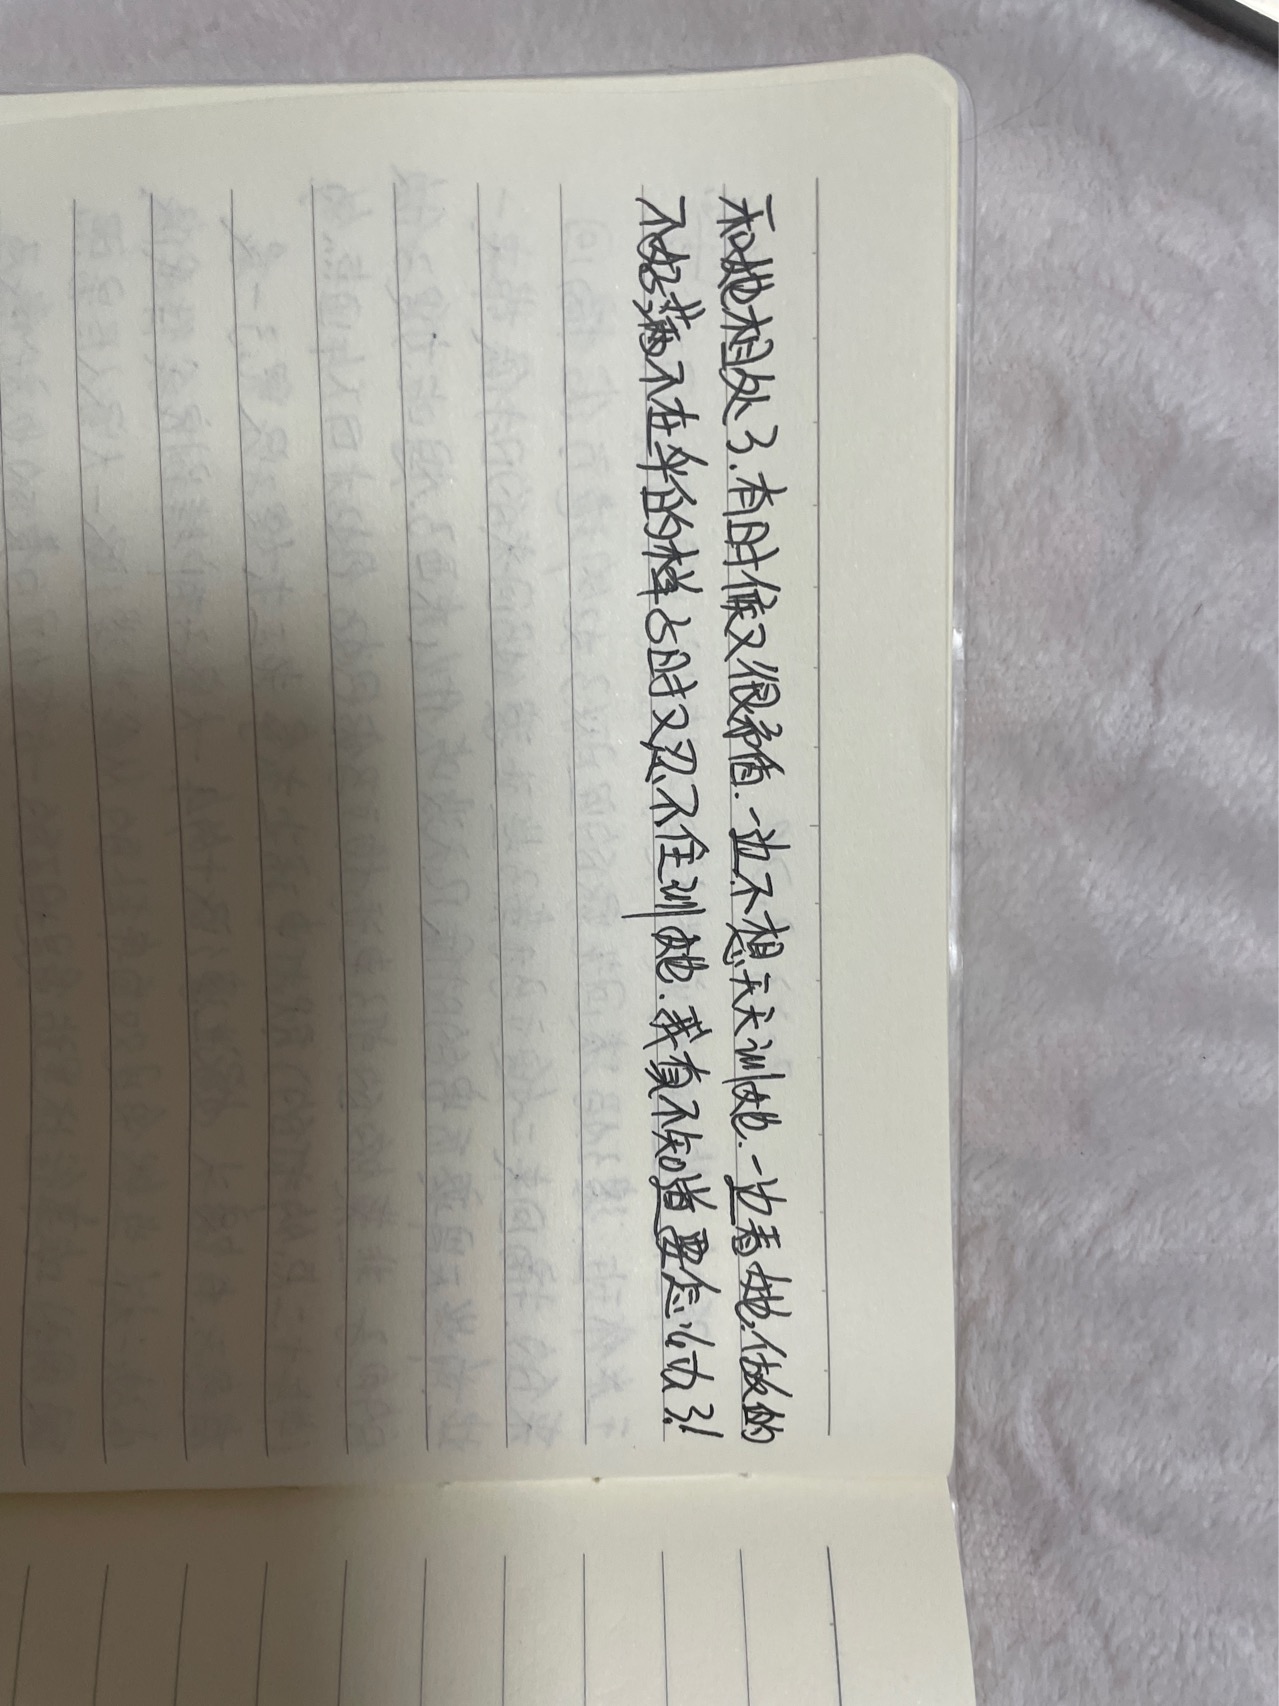 和她相处了.有时候又很矛盾.一边不想天天训她.一边看她做的
不好满不在乎的样子时又忍不住训她.我真不知道要怎么办了!